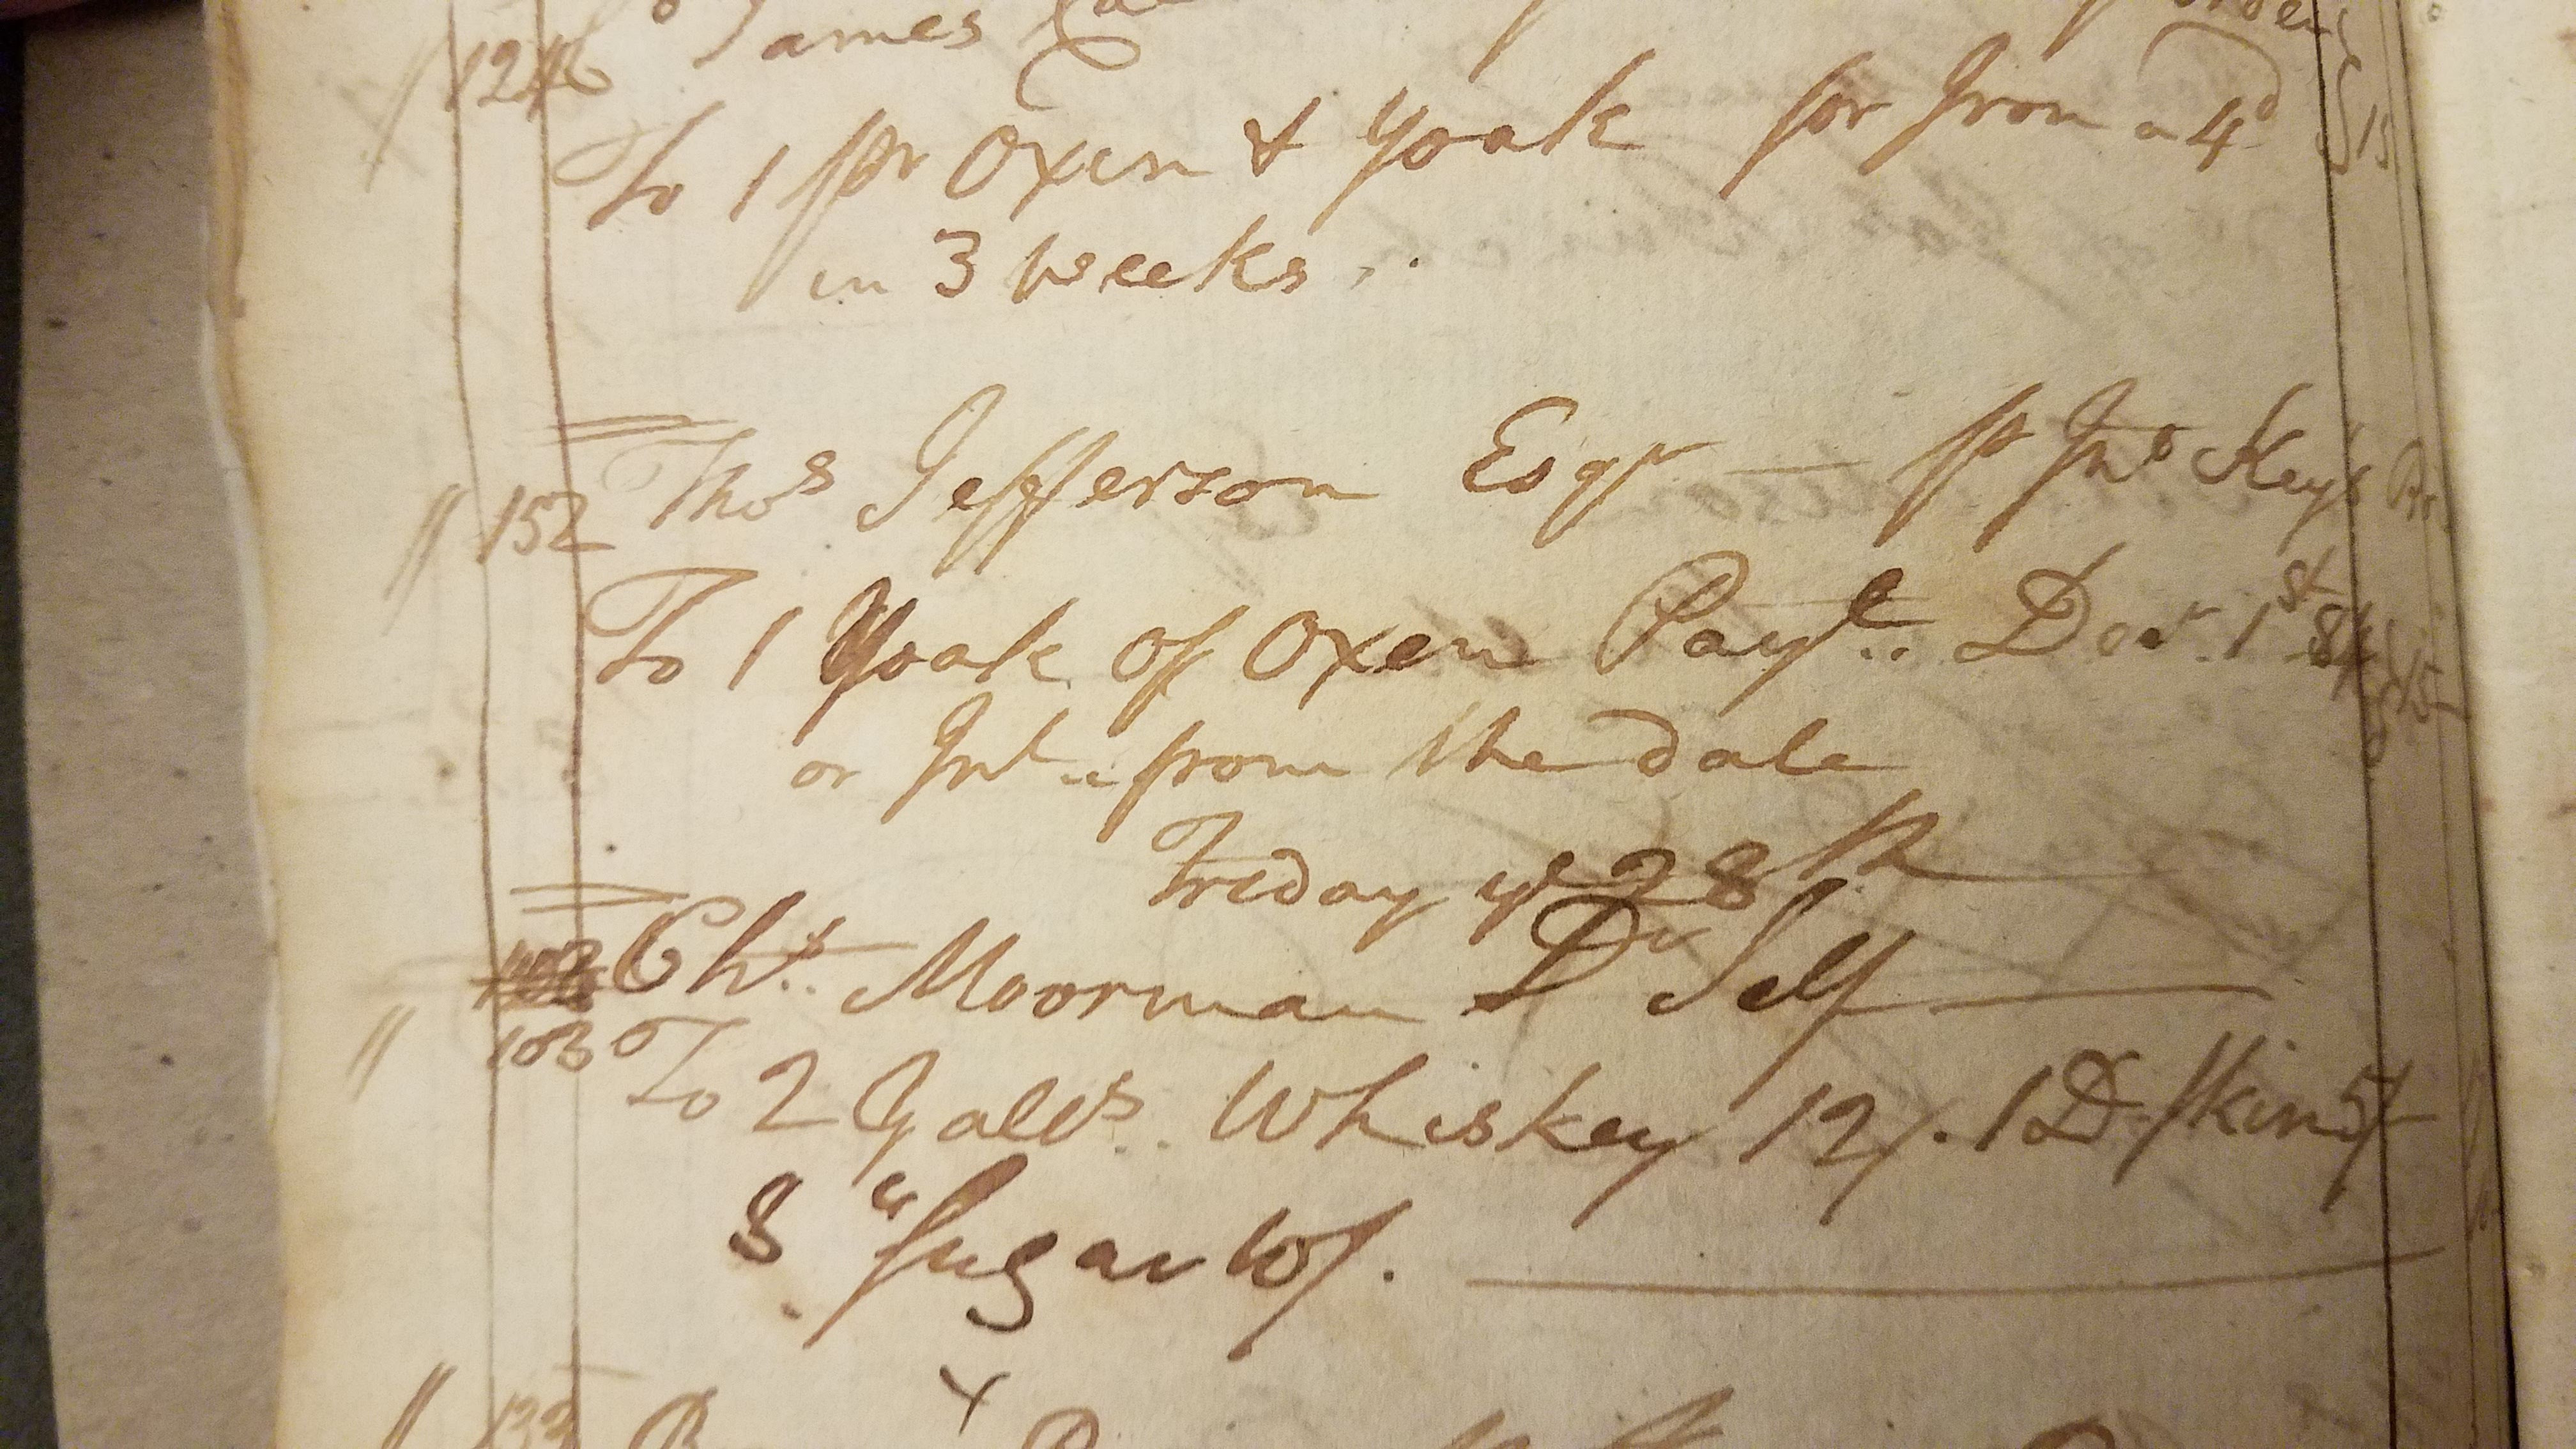 124 James
To 1 pr Oxen & Yoak for Iron a 4d 15
in 3 Weeks
152 Thos Jefferson Esqr — p Jno Key
To 1 Yoak Of Oxen Payl.. Decr. 1st 84 15
or Int.. from the date
Friday ye 28th
Chs.. Moorman Dr Self
103 To 2 Galls. Whiskey 12/. 1 D. Skin 5/
8 " Sugar 10/.